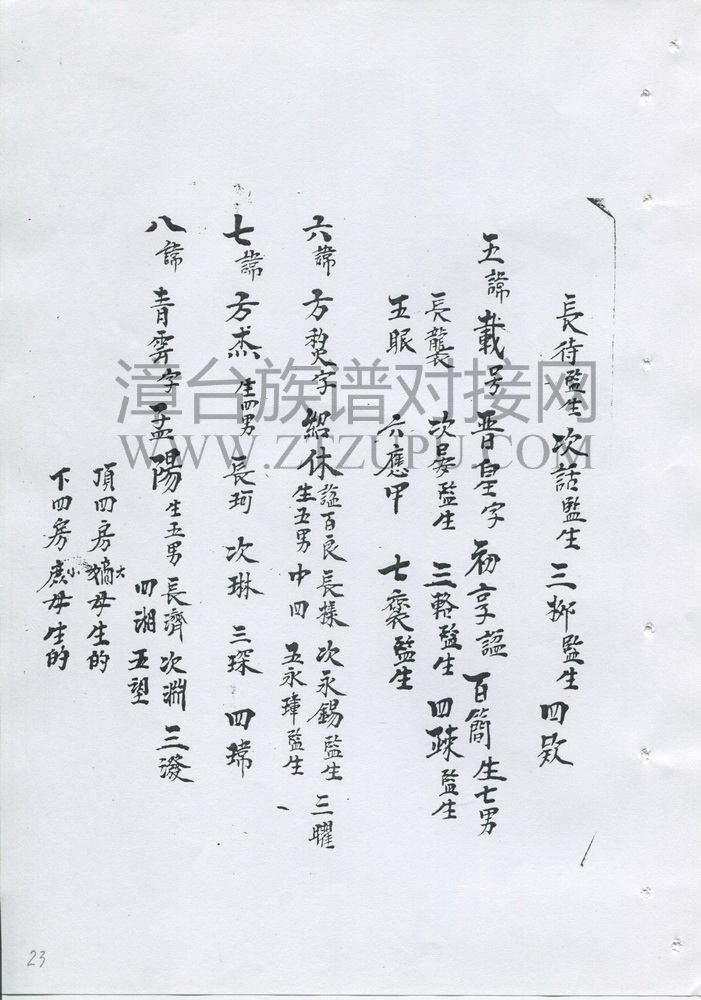 長待監生 次話監生 三捓監生 四欵
五諱載号晋皇字初享諡百簡生七男
長襲 次晏監生 三輅監生 四疎監生
五眠 六應甲 七褒監生
六諱方獎字紹休諡百良生五男 長樣 次永錫監生 三曜
中四 五永瑋監生
七諱方杰生四男 長珂 次琳 三琛 四瑋
八諱青霽字孟陽生五男 長濟 次淵 三潑
四湘 五望
頂四房大嫡母生的
下四房小庶母生的
漳台族谱对接网
WWW.ZTZUPU.COM
23